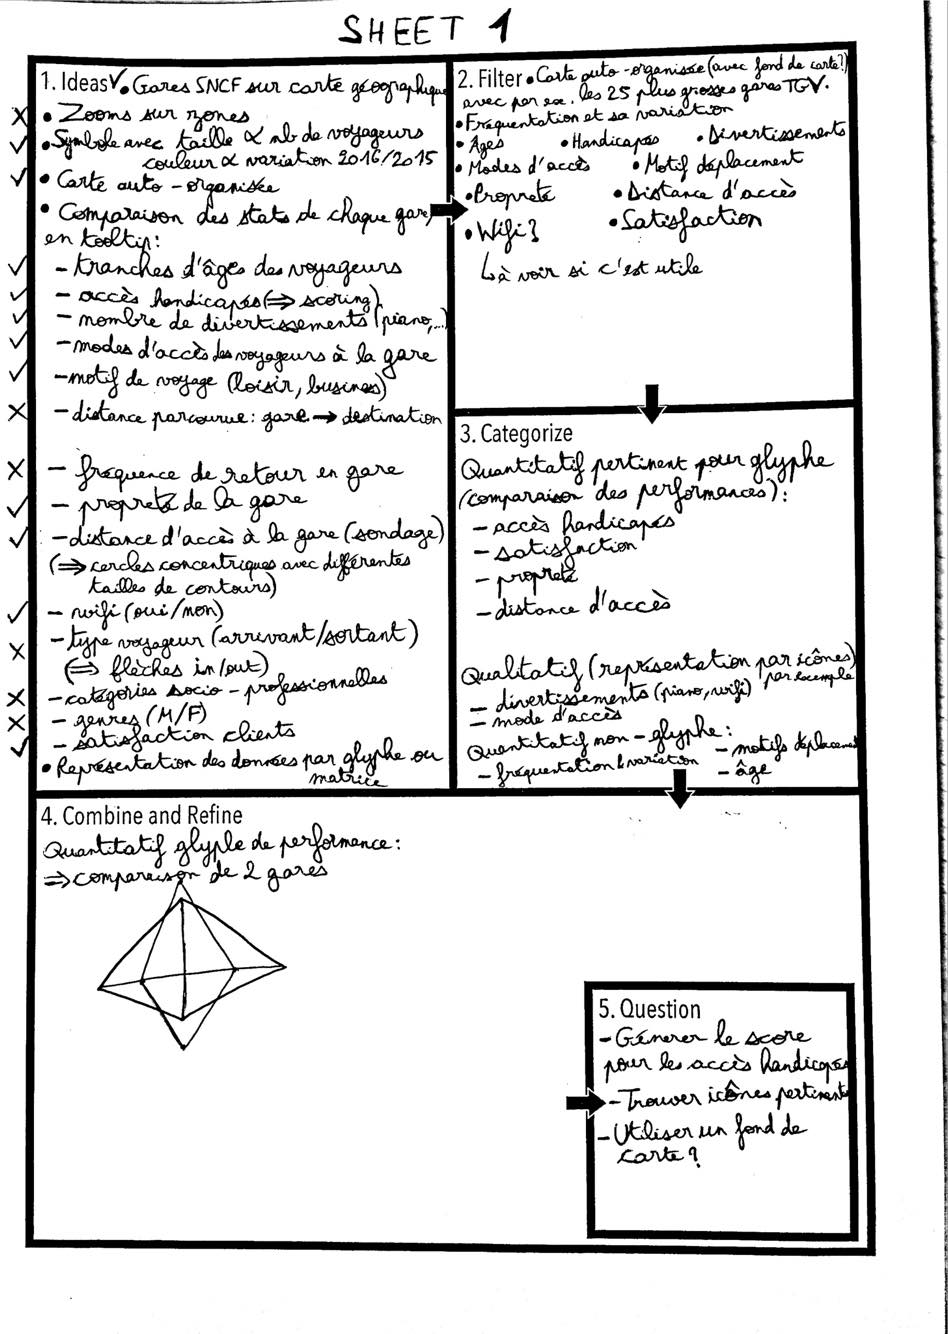 SHEET 1
1. Ideas ✓ • Gares SNCF sur carte géographique
✗ • Zooms sur zones
✓ • Symbole avec taille ∝ nb de voyageurs
couleur ∝ variation 2016/2015
✓ • Carte auto-organisée
• Comparaison des stats de chaque gare
en tooltip:
✓ - tranches d'âges des voyageurs
✓ - accès handicapés (⇒ scoring)
✓ - nombre de divertissements (piano,...)
✓ - modes d'accès des voyageurs à la gare
✓ - motif de voyage (loisir, busines)
✗ - distance parcourue: gare → destination
✗ - fréquence de retour en gare
✓ - propreté de la gare
✓ - distance d'accès à la gare (sondage)
(⇒ cercles concentriques avec différentes
tailles de contours)
✓ - wifi (oui/non)
✗ - type voyageur (arrivant/sortant)
(⇒ flèches in/out)
✗ - catégories socio-professionnelles
✗ - genres (M/F)
✓ - satisfaction clients
• Représentation des données par glyphe ou
matrice
2. Filter • Carte auto-organisée (avec fond de carte?)
avec par ex. les 25 plus grosses gares TGV.
• Fréquentation et sa variation
• Ages • Handicapés • Divertissements
• Modes d'accès • Motif déplacement
• Propreté • Distance d'accès
• Wifi? • Satisfaction
↳ à voir si c'est utile
3. Categorize
Quantitatif pertinent pour glyphe
(comparaison des performances):
- accès handicapés
- satisfaction
- propreté
- distance d'accès
Qualitatif (représentation par icônes)
par exemple
- divertissements (piano, wifi)
- mode d'accès
Quantitatif non-glyphe:
- fréquentation & variation
- motifs déplacement
- âge
4. Combine and Refine
Quantitatif glyphe de performance:
⇒ comparaison de 2 gares
5. Question
- Générer le score
pour les accès handicapés
- Trouver icônes pertinents
- Utiliser un fond de
carte?